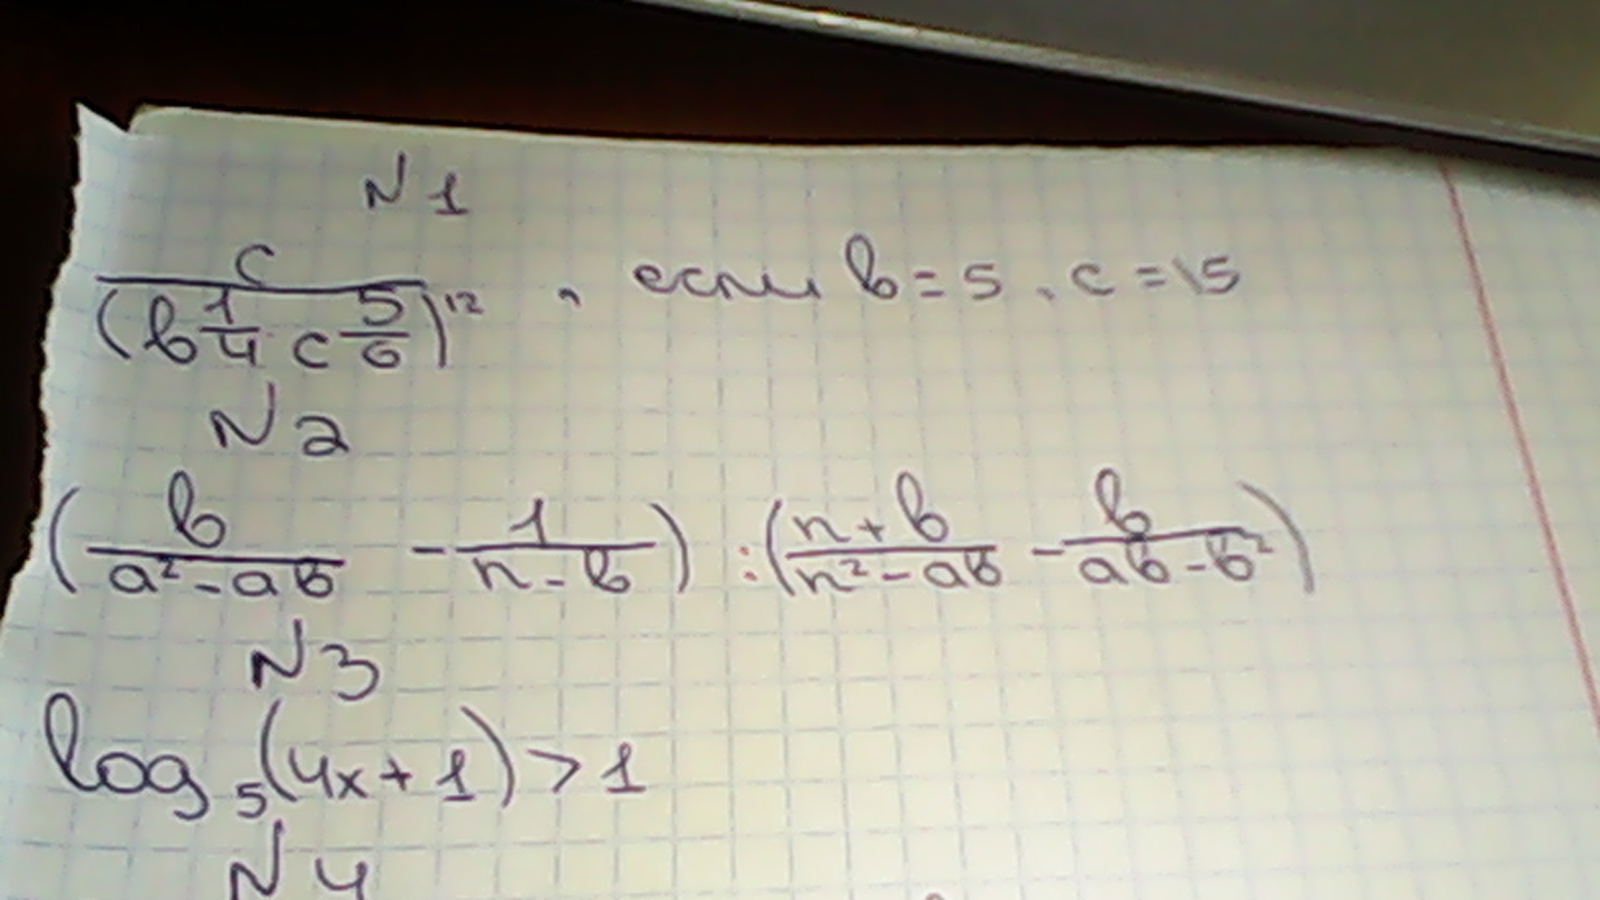 N1
c/(b 1/4 c 5/6)^12 , если b = 5, c = 15
N2
(b/(a² - ab) - 1/(n - b)) : ((n + b)/(n² - ab) - b/(ab - b²))
N3
log₅(4x + 1) > 1
N4